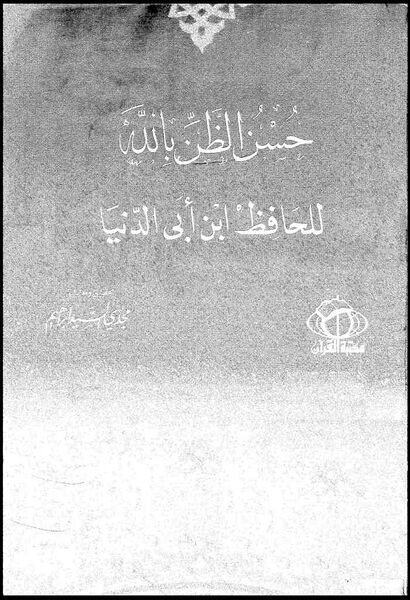 حُسْنُ الظَّنِّ بِاللَّهِ
للحَافِظْ ابْن أَبى الدّنيَا
مجدي السيد إبراهيم
مكتبة القرآن